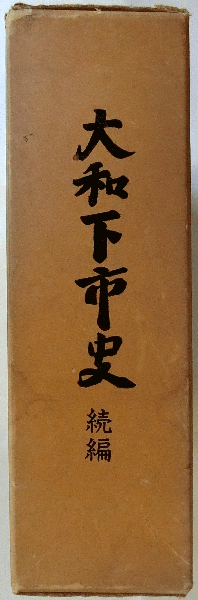 大和下市史
続編